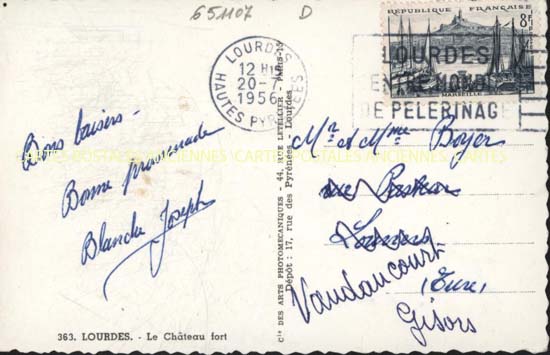 651107 D
RÉPUBLIQUE FRANÇAISE
8F
MARSEILLE
LOURDES
12 H
20-7
1956
HAUTES PYR
LOURDES
DE PELERINAGE
Bons baisers -
Bonne promenade
Blanche Joseph
CARTES POSTALES ANCIENNES CARTES POSTALES ANCIENNES CARTES
Cie DES ARTS PHOTOMECANIQUES - 44, RUE LETELLIER - PARIS-15
Dépôt : 17, rue des Pyrénées - Lourdes
Mr et Mme Boyer
Vaudancourt
(Eure)
Gisors
363. LOURDES. - Le Château fort